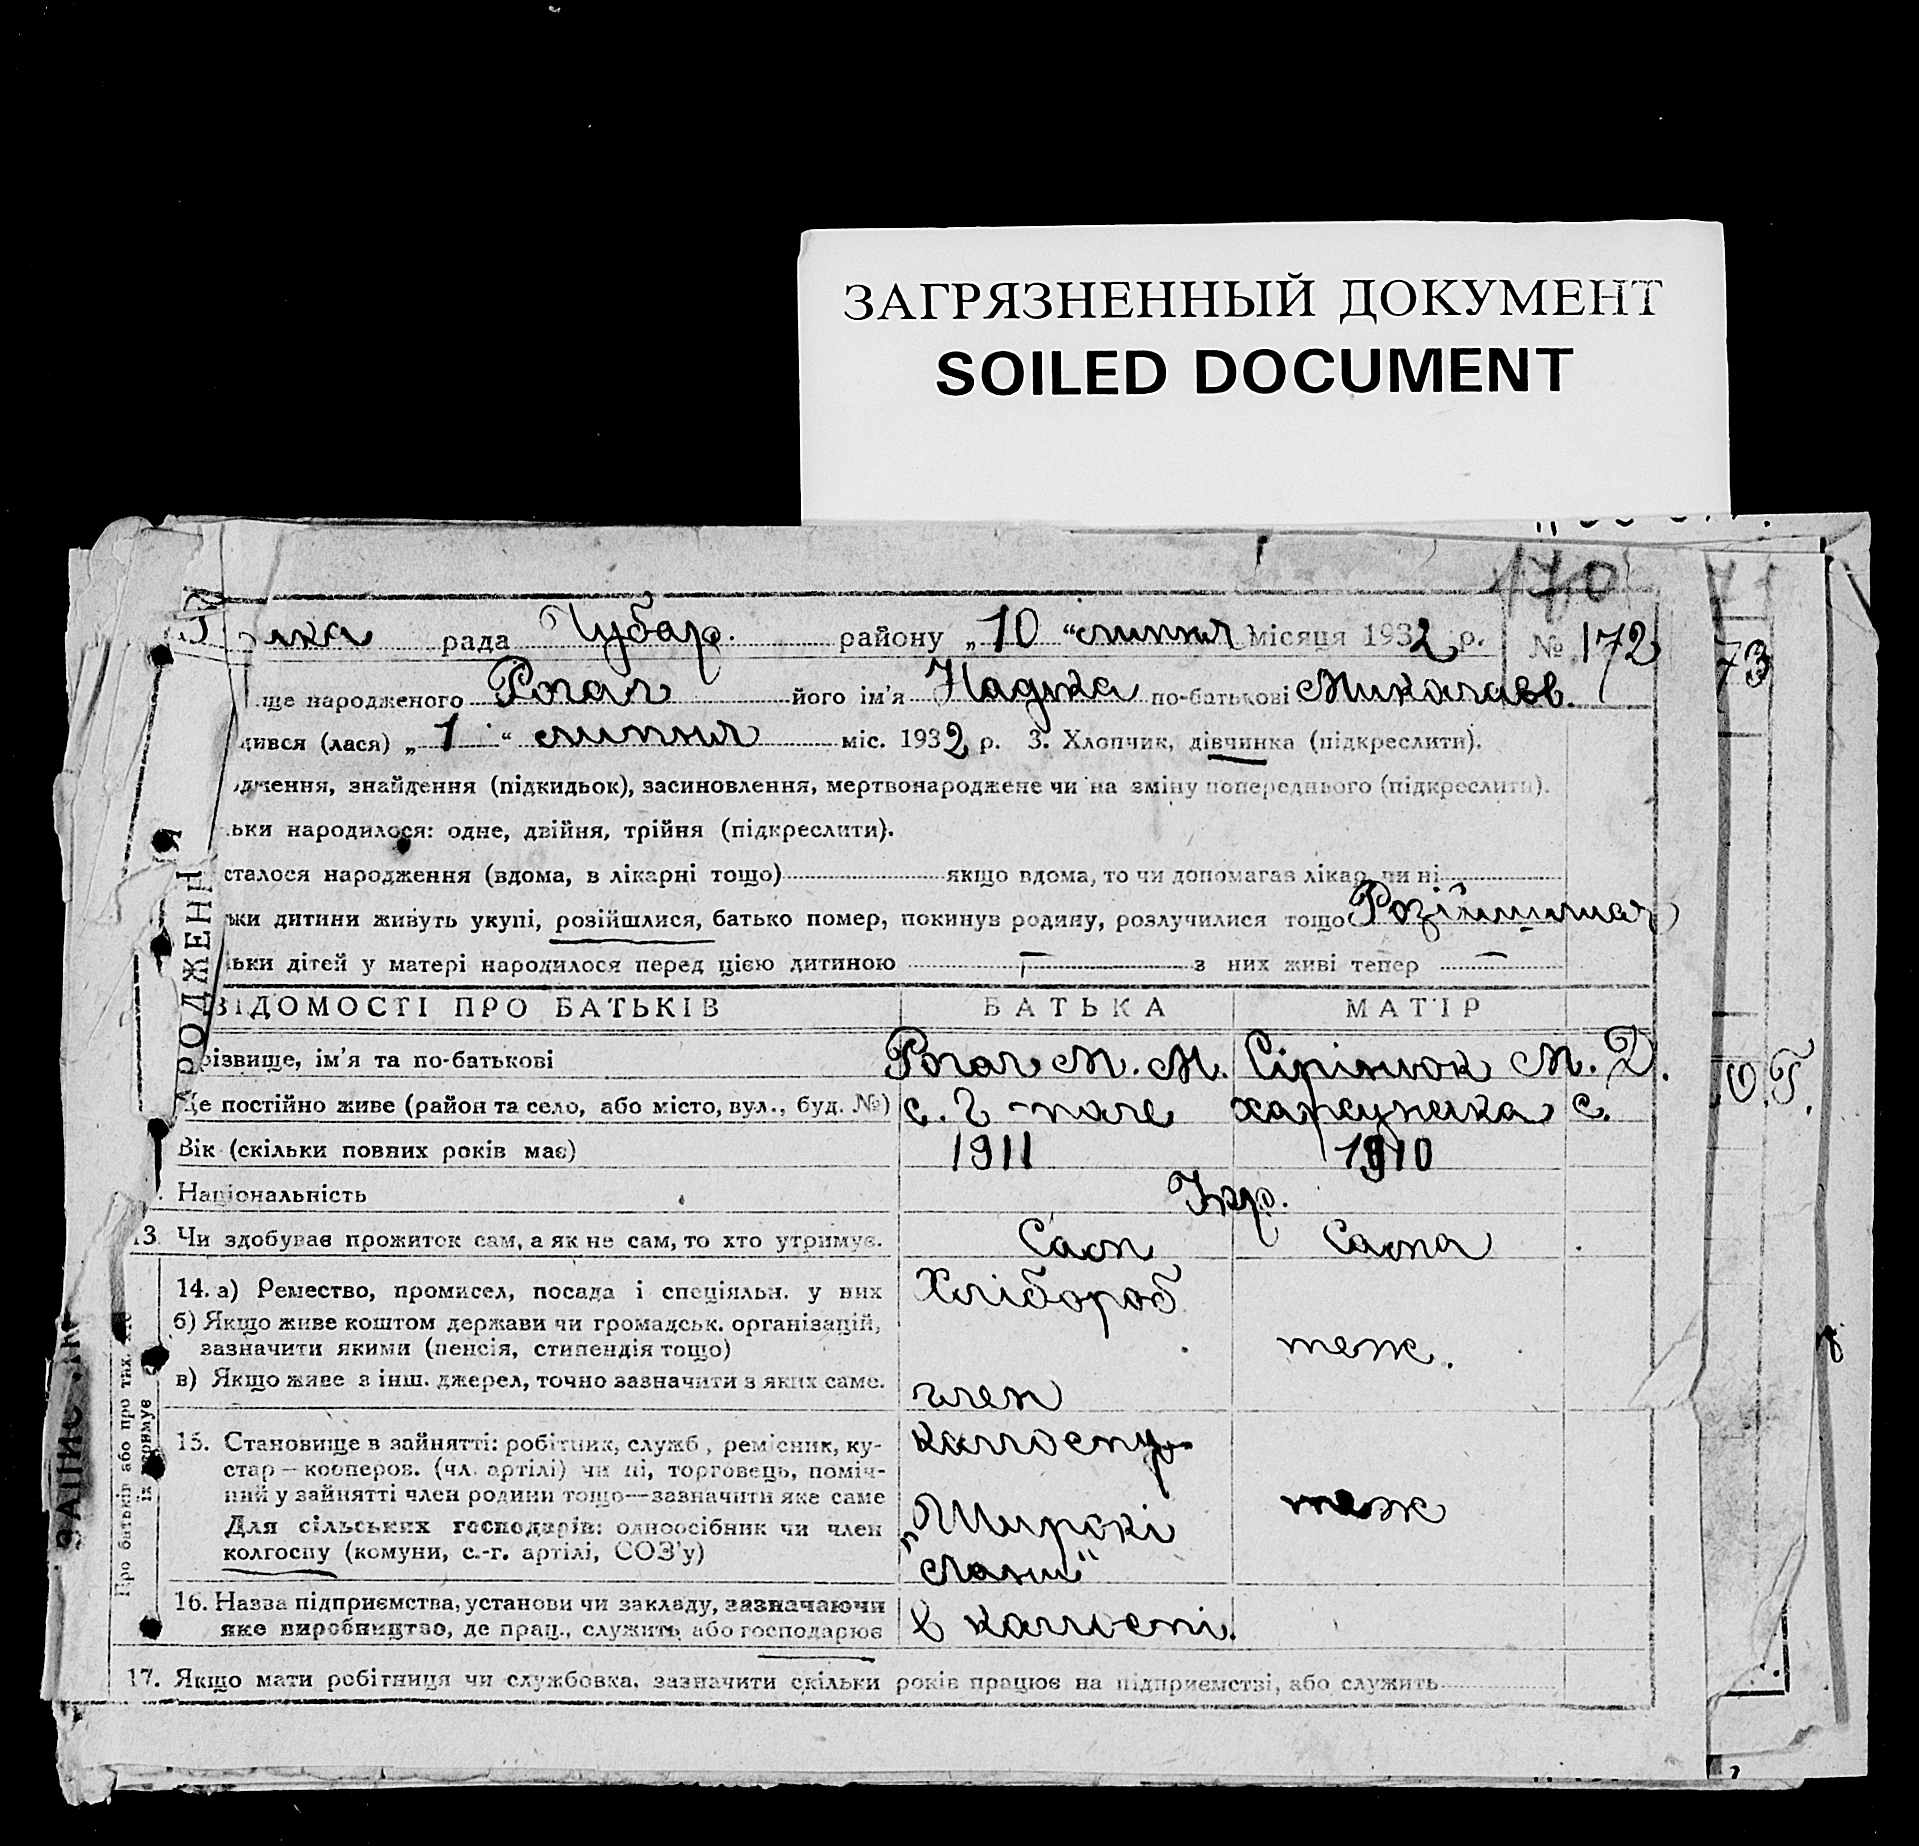 ЗАГРЯЗНЕННЫЙ ДОКУМЕНТ
SOILED DOCUMENT
170
рада Чубар. району „10“ липня місяця 1932 р. № 172
73
ще народженого Рогач його ім'я Надька по-батькові Миколаєв.
дився (лася) „1“ липня міс. 1932 р. 3. Хлопчик, дівчинка (підкреслити).
дження, знайдення (підкидьок), засиновлення, мертвонароджене чи на зміну попереднього (підкреслити).
льки народилося: одне, двійня, трійня (підкреслити).
сталося народження (вдома, в лікарні тощо) якщо вдома, то чи допомагав лікар, чи ні
ки дитини живуть укупі, розійшлися, батько помер, покинув родину, розлучилися тощо
льки дітей у матері народилося перед цією дитиною — з них живі тепер —
ВІДОМОСТІ ПРО БАТЬКІВ БАТЬКА МАТІР
різвище, ім'я та по-батькові Рогач М. М. Сірінчок М. Д.
Де постійно живе (район та село, або місто, вул., буд. №) с. Г-поле с.
Вік (скільки повних років має) 1911 1910
Національність Укр.
13. Чи здобуває прожиток сам, а як не сам, то хто утримує. Сам Сама
14. а) Ремество, промисел, посада і спеціяльн. у них Хлібороб
б) Якщо живе коштом держави чи громадськ. організацій,
зазначити якими (пенсія, стипендія тощо) теж.
в) Якщо живе з інш. джерел, точно зазначити з яких саме. член
15. Становище в зайнятті: робітник, служб, ремісник, ку- колгоспу
стар—кооперов. (чл. артілі) чи ні, торговець, поміч-
ний у зайнятті член родини тощо—зазначити яке саме теж
Для сільських господарів: одноосібник чи член „Широкі
колгоспу (комуни, с.-г. артілі, СОЗ'у) лани“
16. Назва підприємства, установи чи закладу, зазначаючи
яке виробництво, де прац., служить або господарює в колгоспі.
17. Якщо мати робітниця чи службовка, зазначити скільки років працює на підприємстві, або служить